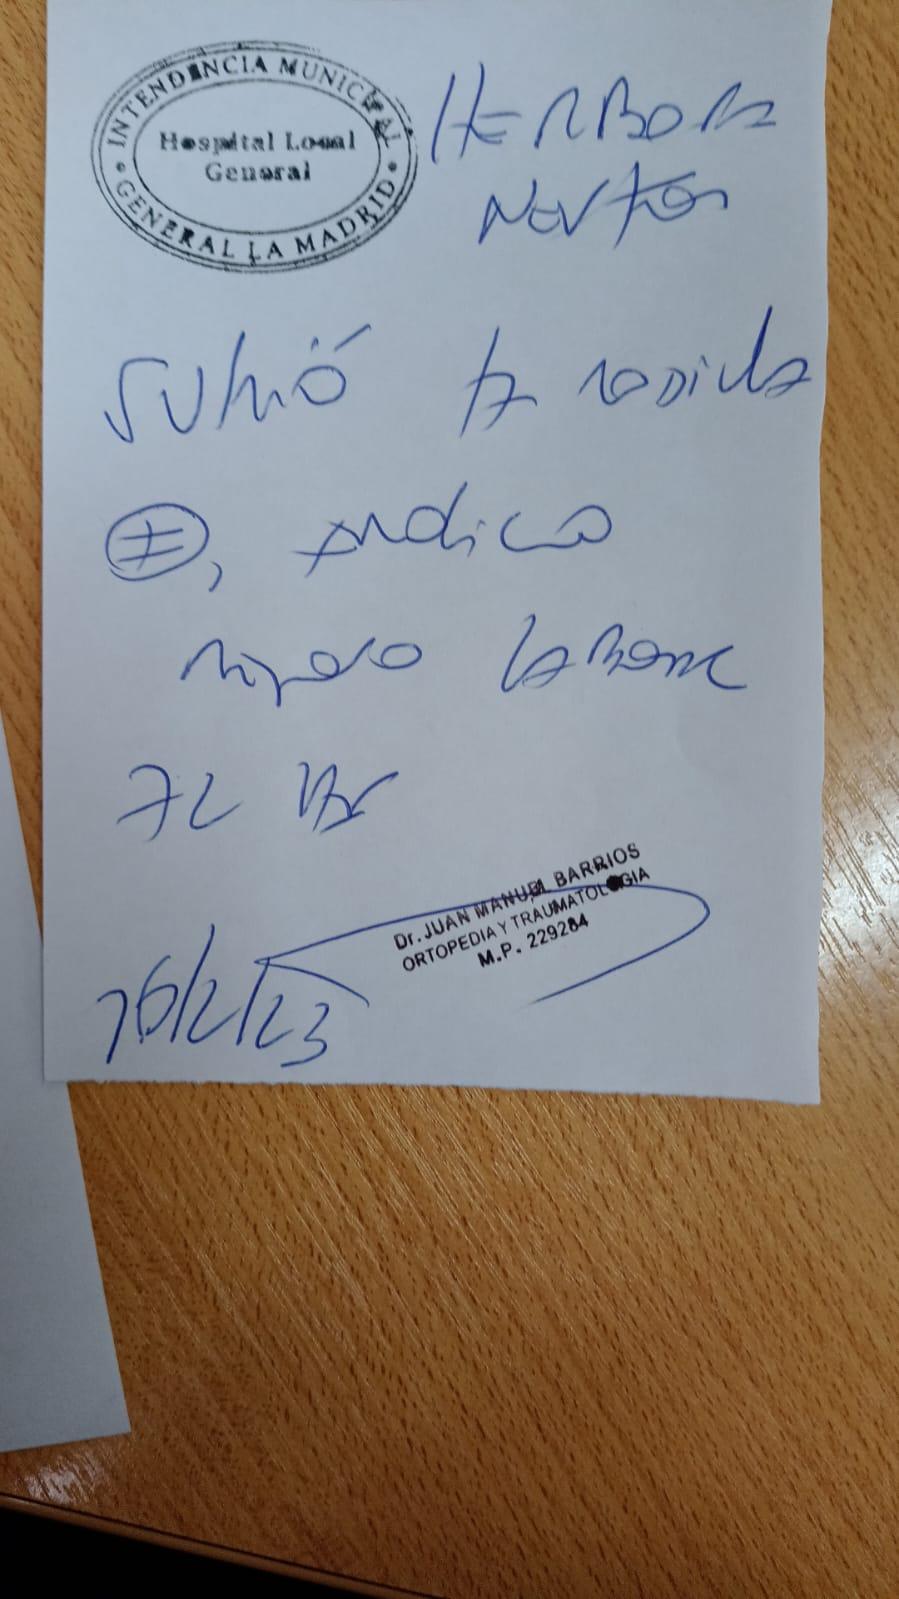 INTENDENCIA MUNICIPAL
Hospital Local
General
GENERAL LA MADRID
HERBORA
NESTOR
rodilla
, indico
reposo laboral
72 hs
Dr. JUAN MANUEL BARRIOS
ORTOPEDIA Y TRAUMATOLOGIA
M.P. 229264
16/2/23